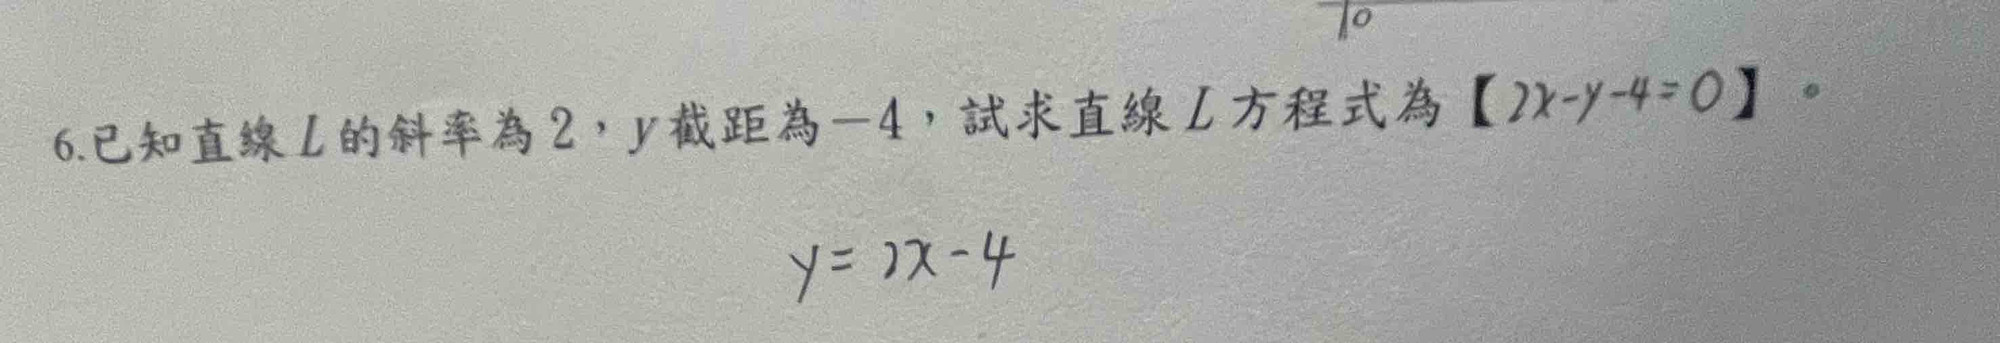 10
6.已知直線L的斜率為2，y截距為－4，試求直線L方程式為【2x-y-4=0】。
y=2x-4